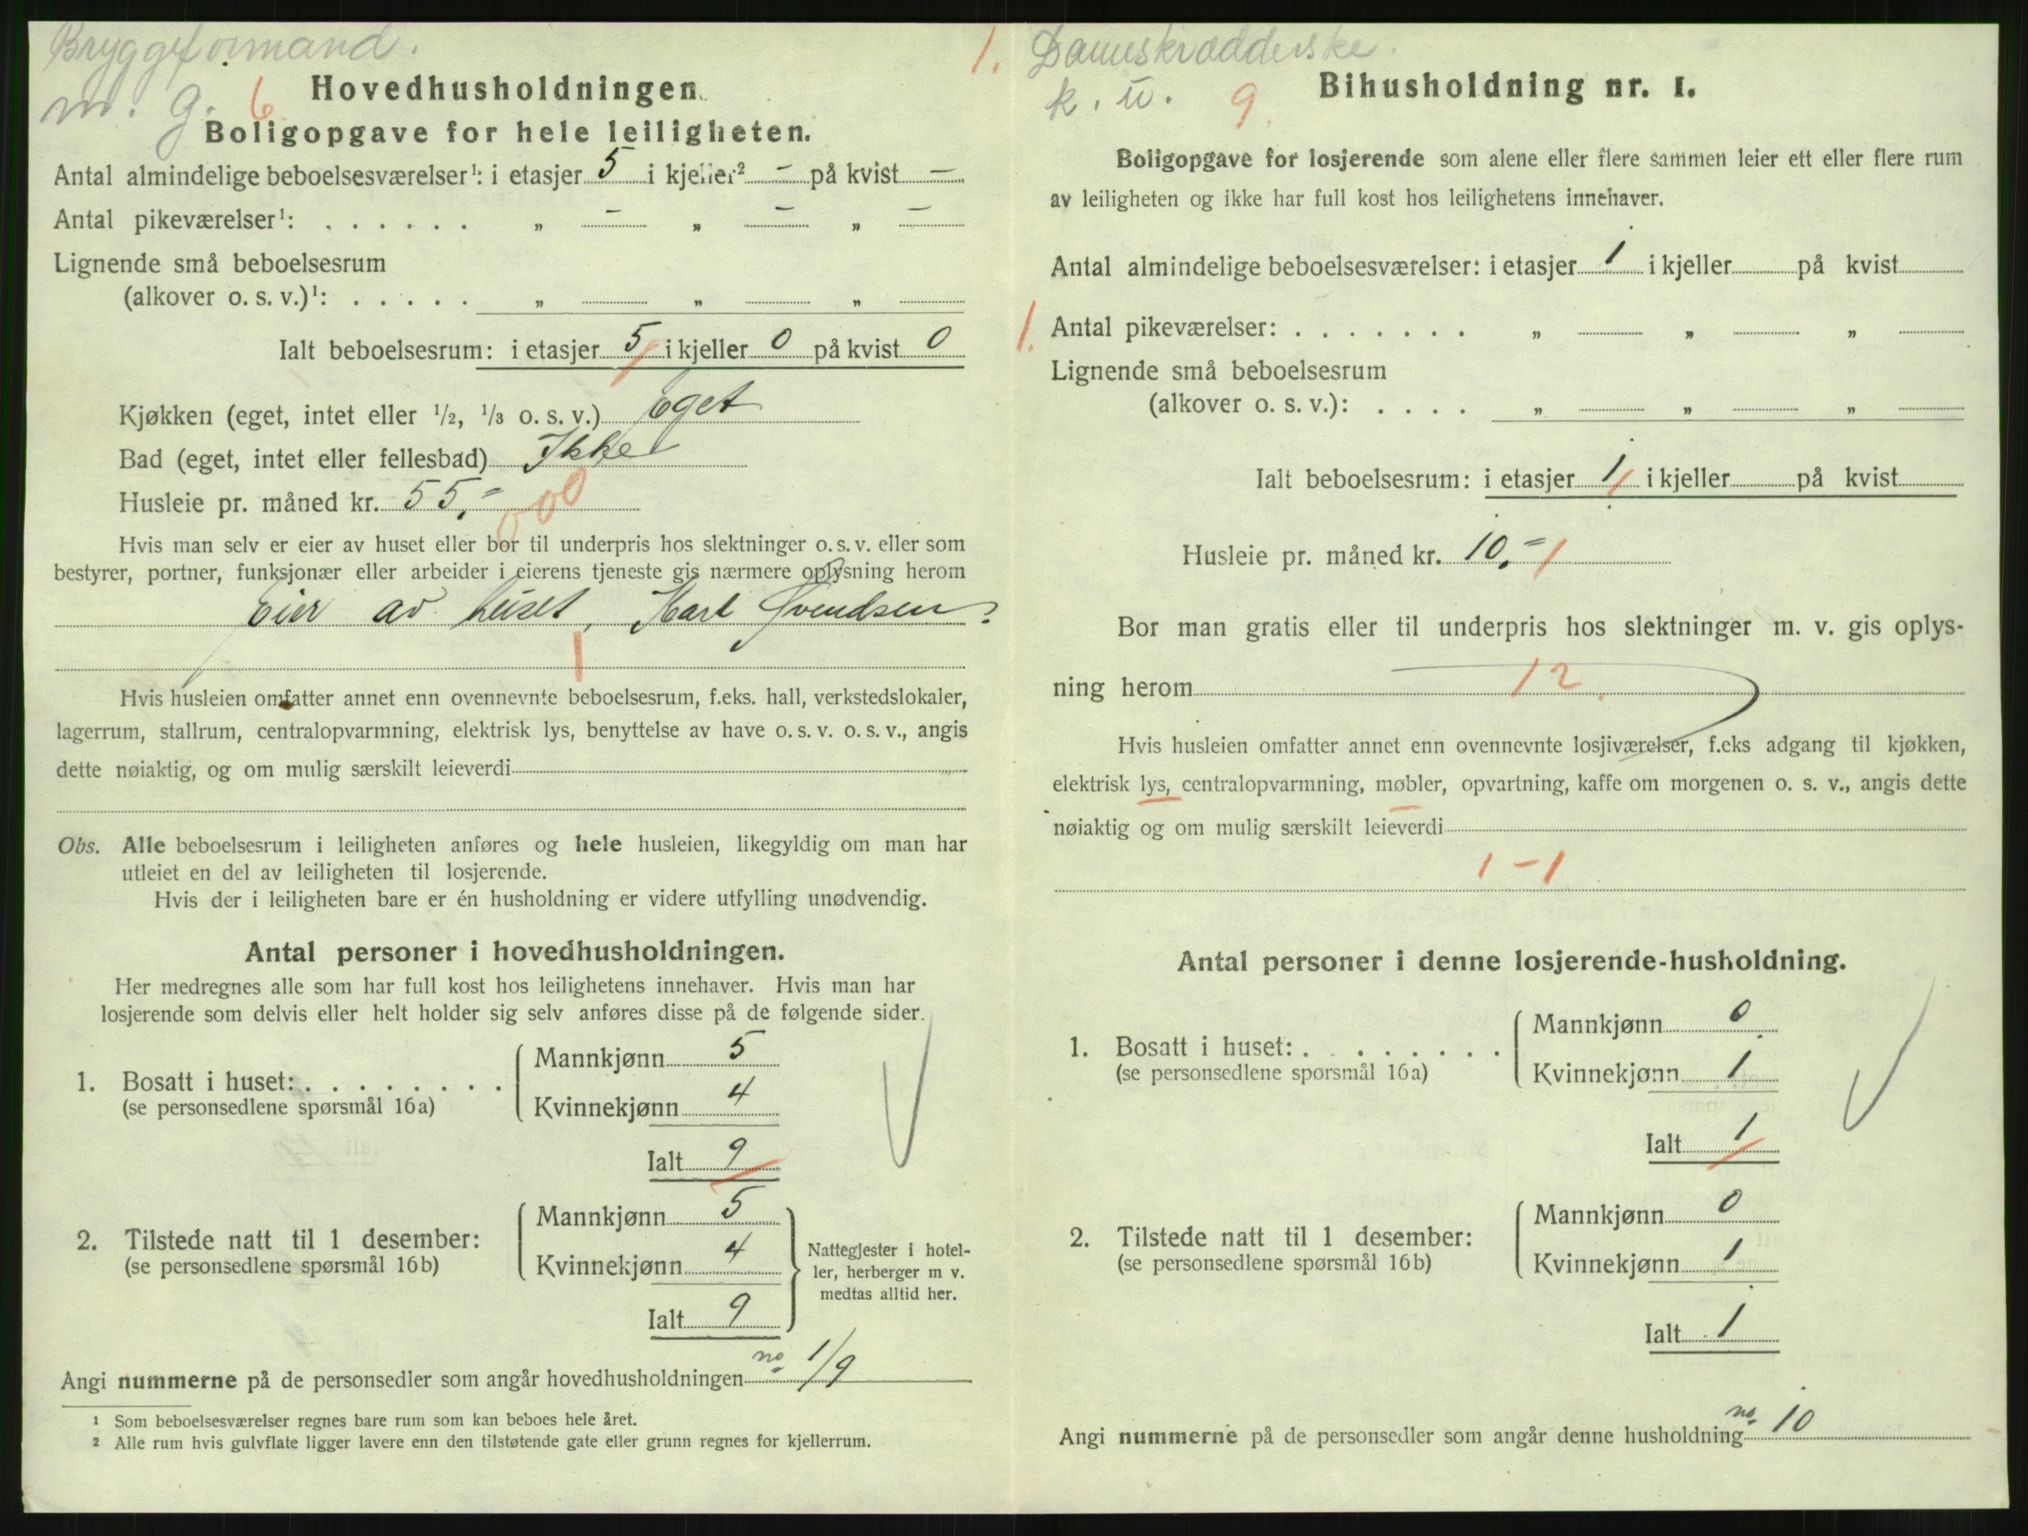 Bryggeformand.
m. g. 6.
Hovedhusholdningen.
Boligopgave for hele leiligheten.
Antal almindelige beboelsesværelser¹: i etasjer 5 i kjeller² – på kvist –
Antal pikeværelser¹: . . . . . . „ – „ – „ –
Lignende små beboelsesrum
(alkover o. s. v.)¹: . . . . . „ „ „
Ialt beboelsesrum: i etasjer 5 i kjeller 0 på kvist 0
Kjøkken (eget, intet eller 1/2, 1/3 o. s. v.) Eget
Bad (eget, intet eller fellesbad) Ikke
Husleie pr. måned kr. 55,= 000
Hvis man selv er eier av huset eller bor til underpris hos slektninger o. s. v. eller som
bestyrer, portner, funksjonær eller arbeider i eierens tjeneste gis nærmere oplysning herom
Eier av huset, Karl Svendsen
1
Hvis husleien omfatter annet enn ovennevnte beboelsesrum, f.eks. hall, verkstedslokaler,
lagerrum, stallrum, centralopvarmning, elektrisk lys, benyttelse av have o. s. v. o. s. v., angis
dette nøiaktig, og om mulig særskilt leieverdi
Obs. Alle beboelsesrum i leiligheten anføres og hele husleien, likegyldig om man har
utleiet en del av leiligheten til losjerende.
Hvis der i leiligheten bare er én husholdning er videre utfylling unødvendig.
Antal personer i hovedhusholdningen.
Her medregnes alle som har full kost hos leilighetens innehaver. Hvis man har
losjerende som delvis eller helt holder sig selv anføres disse på de følgende sider.
1. Bosatt i huset: . . . . . . . .
(se personsedlene spørsmål 16a)
Mannkjønn 5
Kvinnekjønn 4
Ialt 9
2. Tilstede natt til 1 desember:
(se personsedlene spørsmål 16b)
Mannkjønn 5
Kvinnekjønn 4
Ialt 9
Nattegjester i hotel-
ler, herberger m v.
medtas alltid her.
Angi nummerne på de personsedler som angår hovedhusholdningen no 1/9
¹ Som beboelsesværelser regnes bare rum som kan beboes hele året.
² Alle rum hvis gulvflate ligger lavere enn den tilstøtende gate eller grunn regnes for kjellerrum.
1. Dameskrædderske.
k. u. 9.
Bihusholdning nr. 1.
Boligopgave for losjerende som alene eller flere sammen leier ett eller flere rum
av leiligheten og ikke har full kost hos leilighetens innehaver.
Antal almindelige beboelsesværelser: i etasjer 1 i kjeller på kvist
1. Antal pikeværelser: . . . . . . . „ „ „
Lignende små beboelsesrum
(alkover o. s. v.): . . . . „ „ „
Ialt beboelsesrum: i etasjer 1 i kjeller på kvist
Husleie pr. måned kr. 10,= 1
Bor man gratis eller til underpris hos slektninger m. v. gis oplys-
ning herom 12.
Hvis husleien omfatter annet enn ovennevnte losjiværelser, f.eks adgang til kjøkken,
elektrisk lys, centralopvarmning, møbler, opvartning, kaffe om morgenen o. s. v., angis dette
nøiaktig og om mulig særskilt leieverdi
1 – 1
Antal personer i denne losjerende-husholdning.
1. Bosatt i huset: . . . . . . . .
(se personsedlene spørsmål 16a)
Mannkjønn 0
Kvinnekjønn 1
Ialt 1
2. Tilstede natt til 1 desember:
(se personsedlene spørsmål 16b)
Mannkjønn 0
Kvinnekjønn 1
Ialt 1
Angi nummerne på de personsedler som angår denne husholdning no. 10